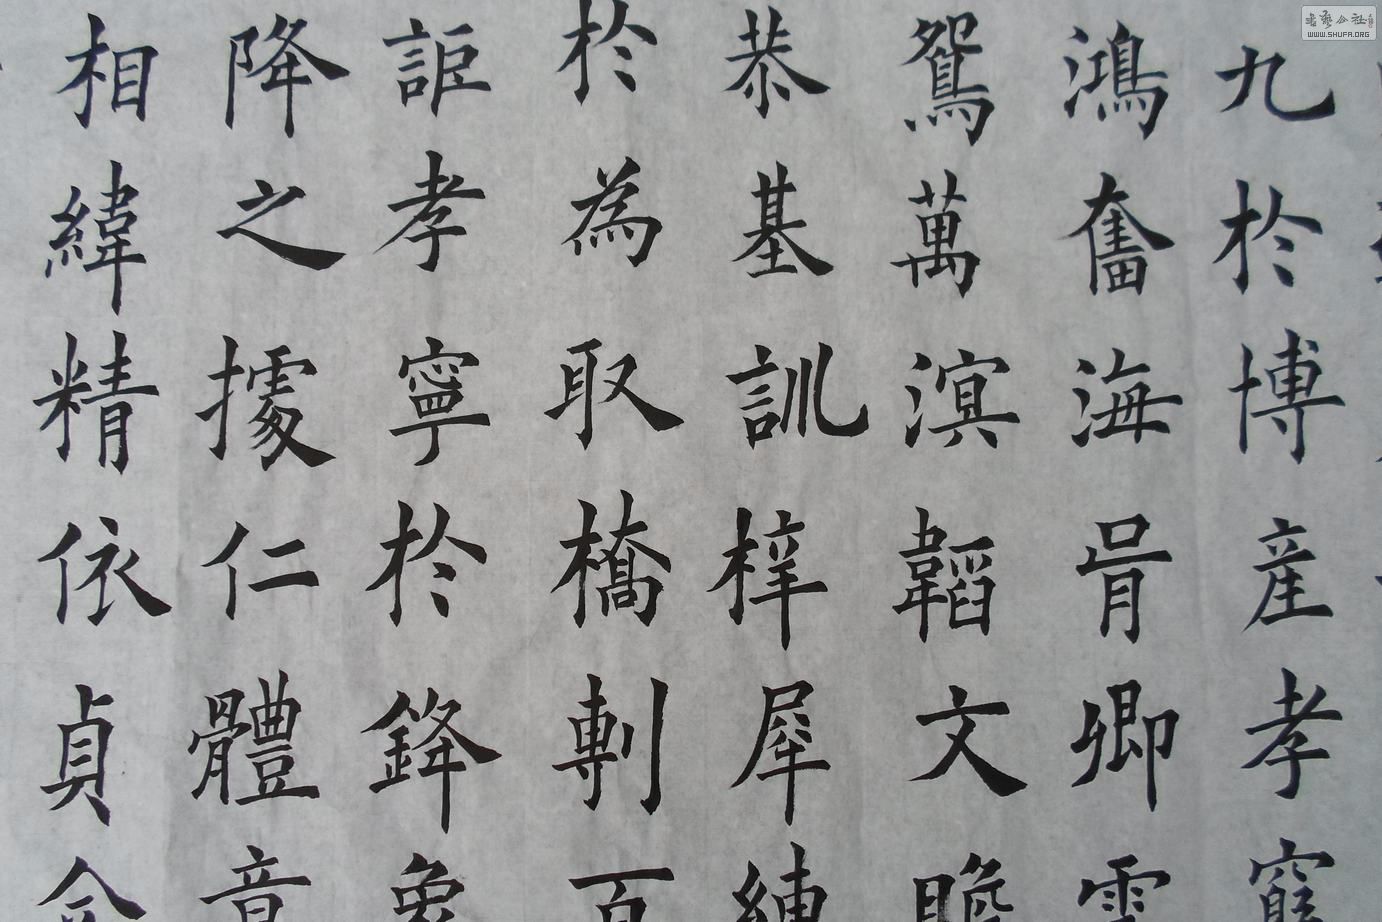 九於博產孝窮
鴻奮海卿雲
鴛萬溟韜文瞻
恭基訓梓犀練
於為取橋剸百
詎孝寧於鋒象
降之據仁體
相緯精依貞
書藝公社
WWW.SHUFA.ORG